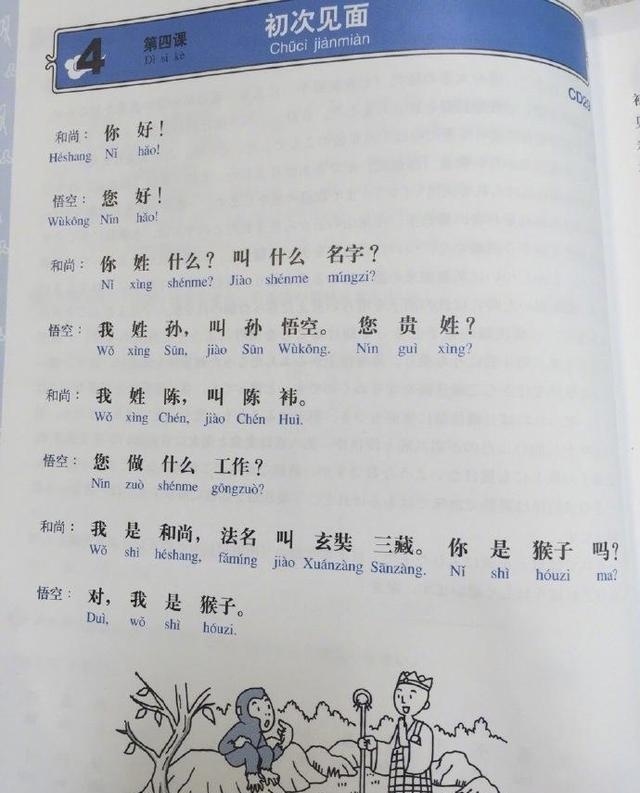 4 第四课 初次见面
Dì sì kè Chūcì jiànmiàn
CD29
和尚： 你 好！
Héshang Nǐ hǎo!
悟空： 您 好！
Wùkōng Nín hǎo!
和尚： 你 姓 什么？ 叫 什么 名字？
Nǐ xìng shénme? Jiào shénme míngzi?
悟空： 我 姓 孙， 叫 孙 悟空。 您 贵 姓？
Wǒ xìng Sūn, jiào Sūn Wùkōng. Nín guì xìng?
和尚： 我 姓 陈， 叫 陈 袆。
Wǒ xìng Chén, jiào Chén Huī.
悟空： 您 做 什么 工作？
Nín zuò shénme gōngzuò?
和尚： 我 是 和尚， 法名 叫 玄奘 三藏。 你 是 猴子 吗？
Wǒ shì héshang, fǎmíng jiào Xuánzàng Sānzàng. Nǐ shì hóuzi ma?
悟空： 对， 我 是 猴子。
Duì, wǒ shì hóuzi.